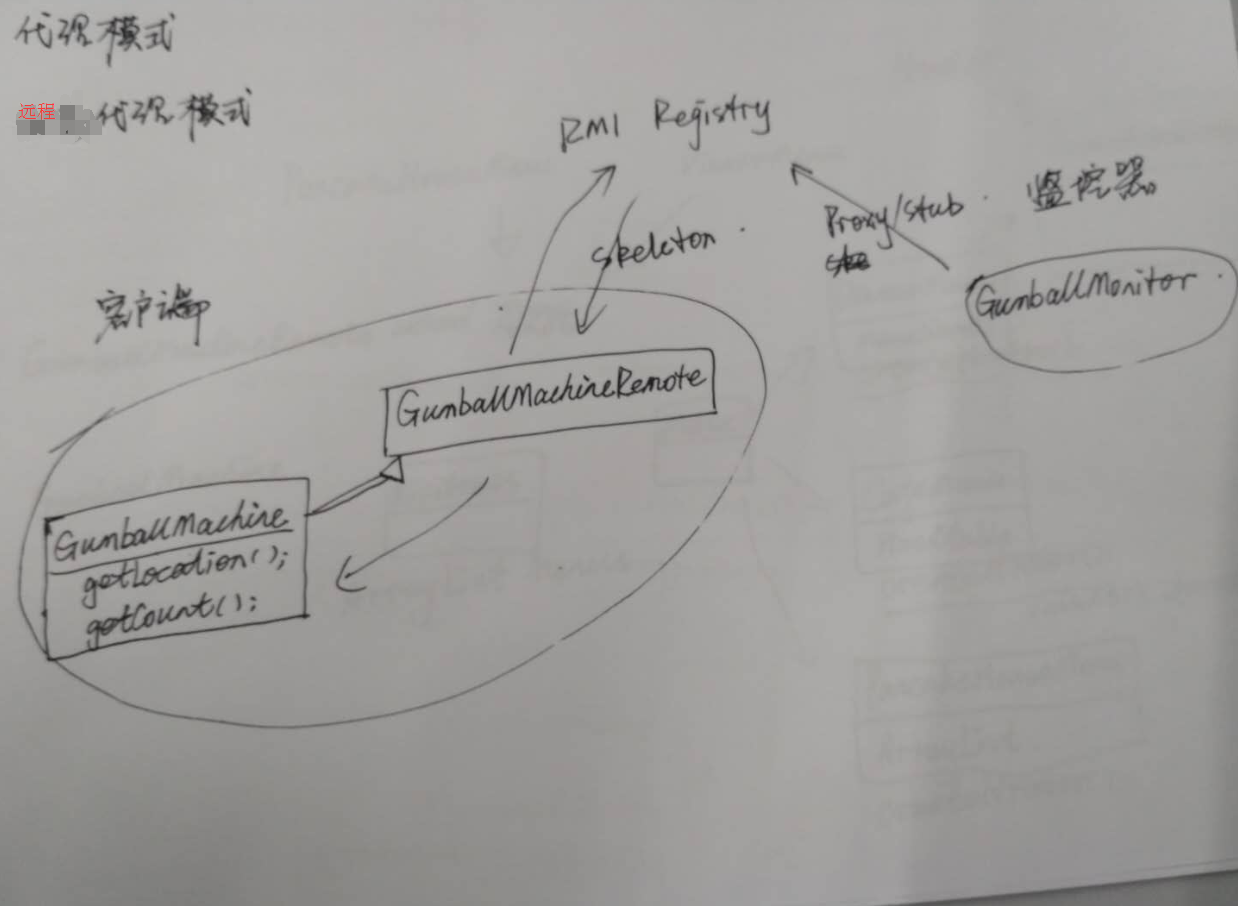 代理模式
远程代理模式
RMI Registry
Proxy/stub.
监控器
skeleton.
GumballMonitor.
客户端
GumballMachineRemote
GumballMachine
getLocation();
getCount();